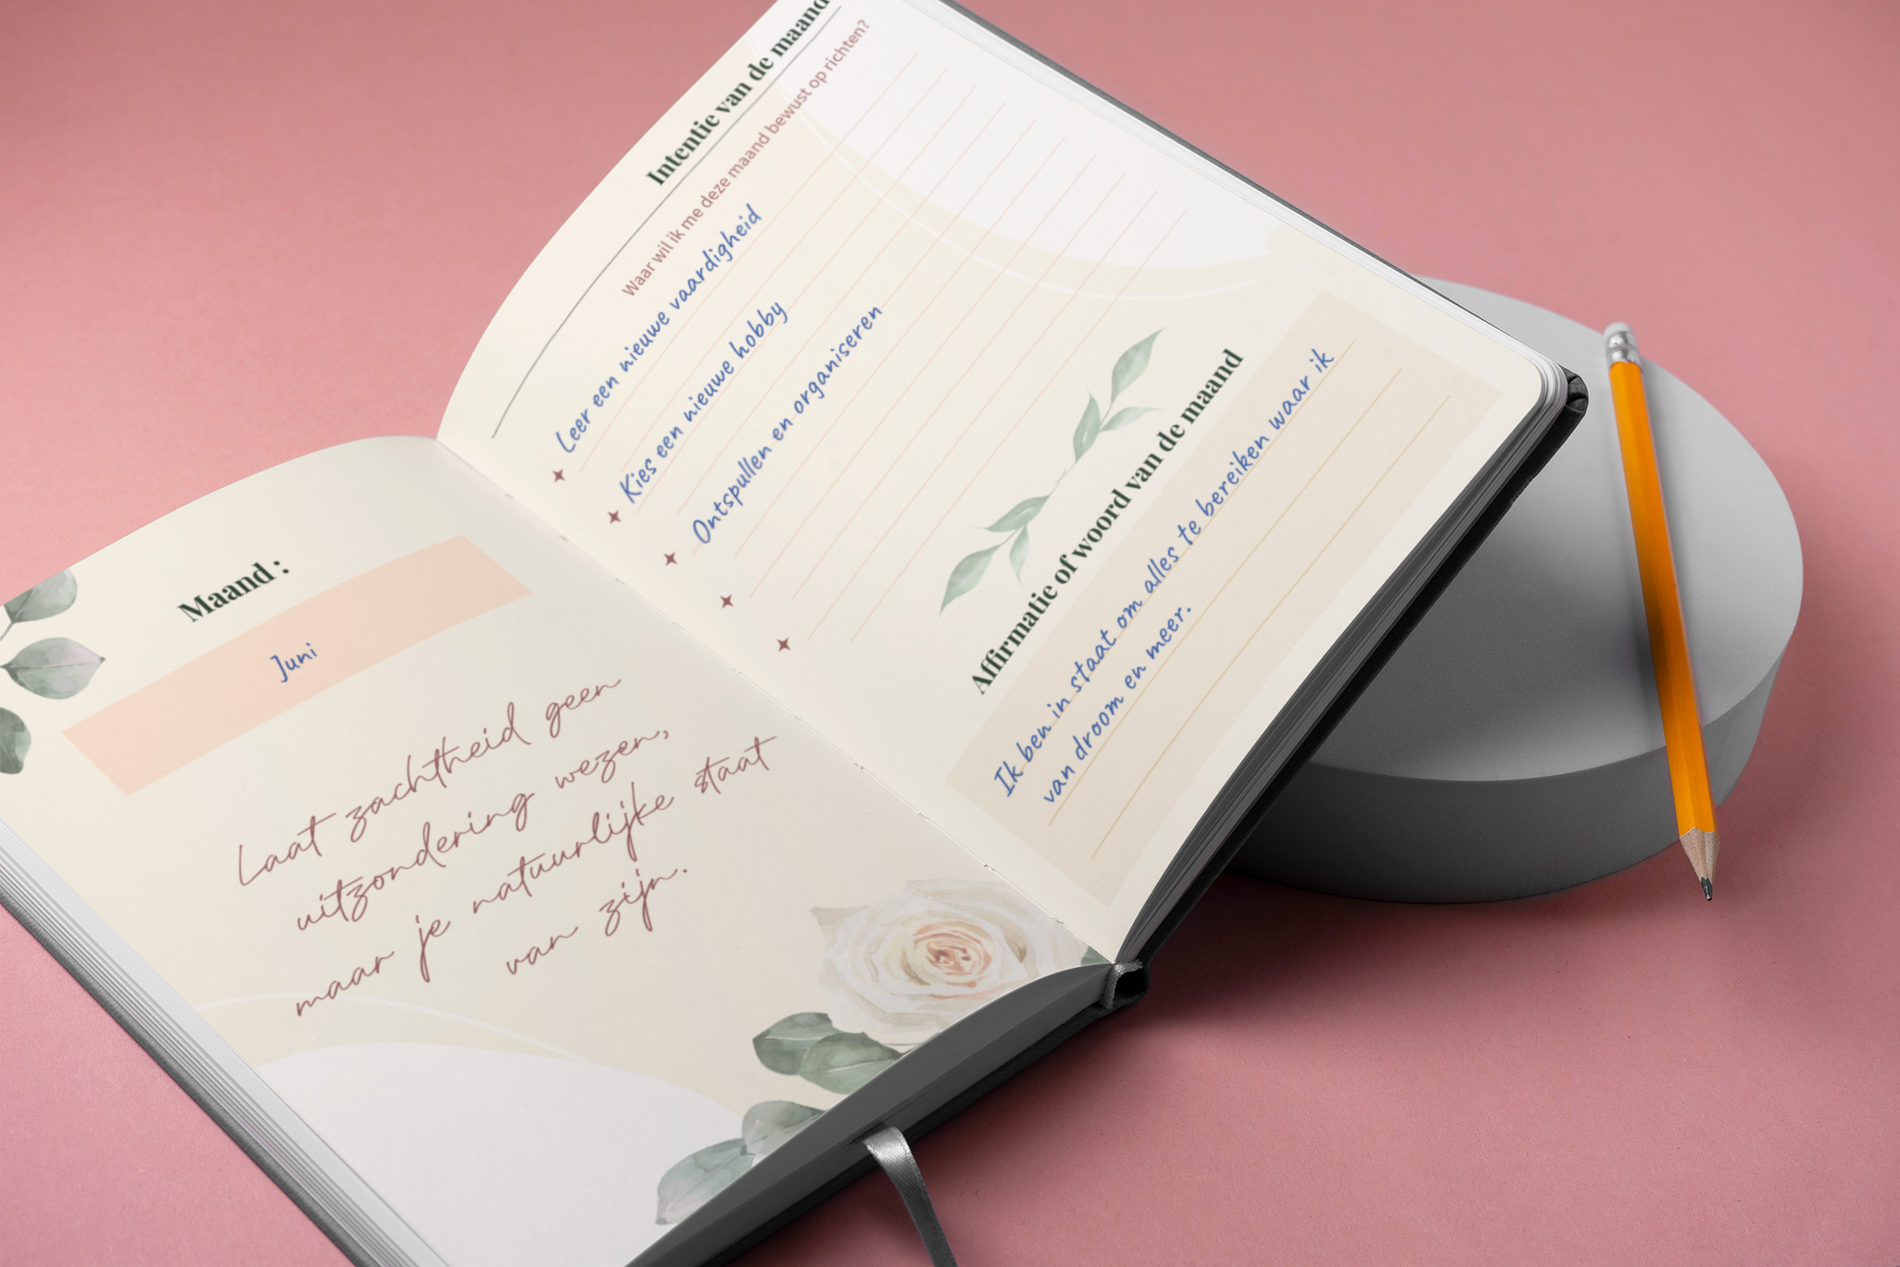 Maand :
Juni
Laat zachtheid geen
uitzondering wezen,
maar je natuurlijke staat
van zijn.
Intentie van de maand
Waar wil ik me deze maand bewust op richten?
Leer een nieuwe vaardigheid
Kies een nieuwe hobby
Ontspullen en organiseren
Affirmatie of woord van de maand
Ik ben in staat om alles te bereiken waar ik
van droom en meer.